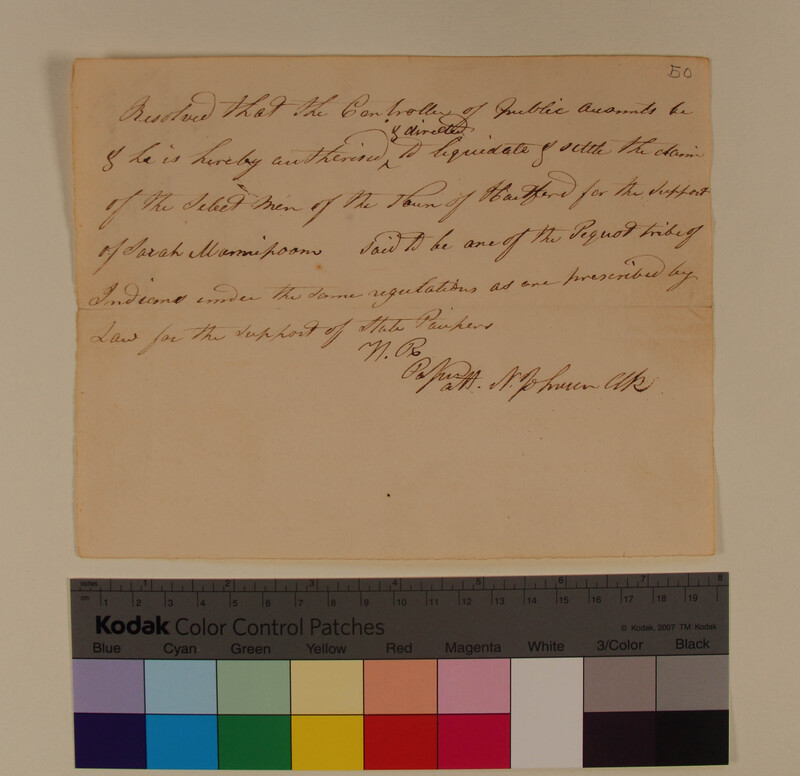 50
Resolved that the Controller of Public accounts be
& directed
& he is hereby authorised ^ to liquidate & settle the claim
of the Select men of the Town of Hartford for the support
of Sarah Mamipoom said to be one of the Pequot tribe of
Indians under the same regulations as are prescribed by
Law for the support of State Paupers
H. R.
Passed
att. N. Johnson Clk
inches 1 2 3 4 5 6 7 8
cm 1 2 3 4 5 6 7 8 9 10 11 12 13 14 15 16 17 18 19
Kodak Color Control Patches
© Kodak, 2007 TM Kodak
Blue Cyan Green Yellow Red Magenta White 3/Color Black